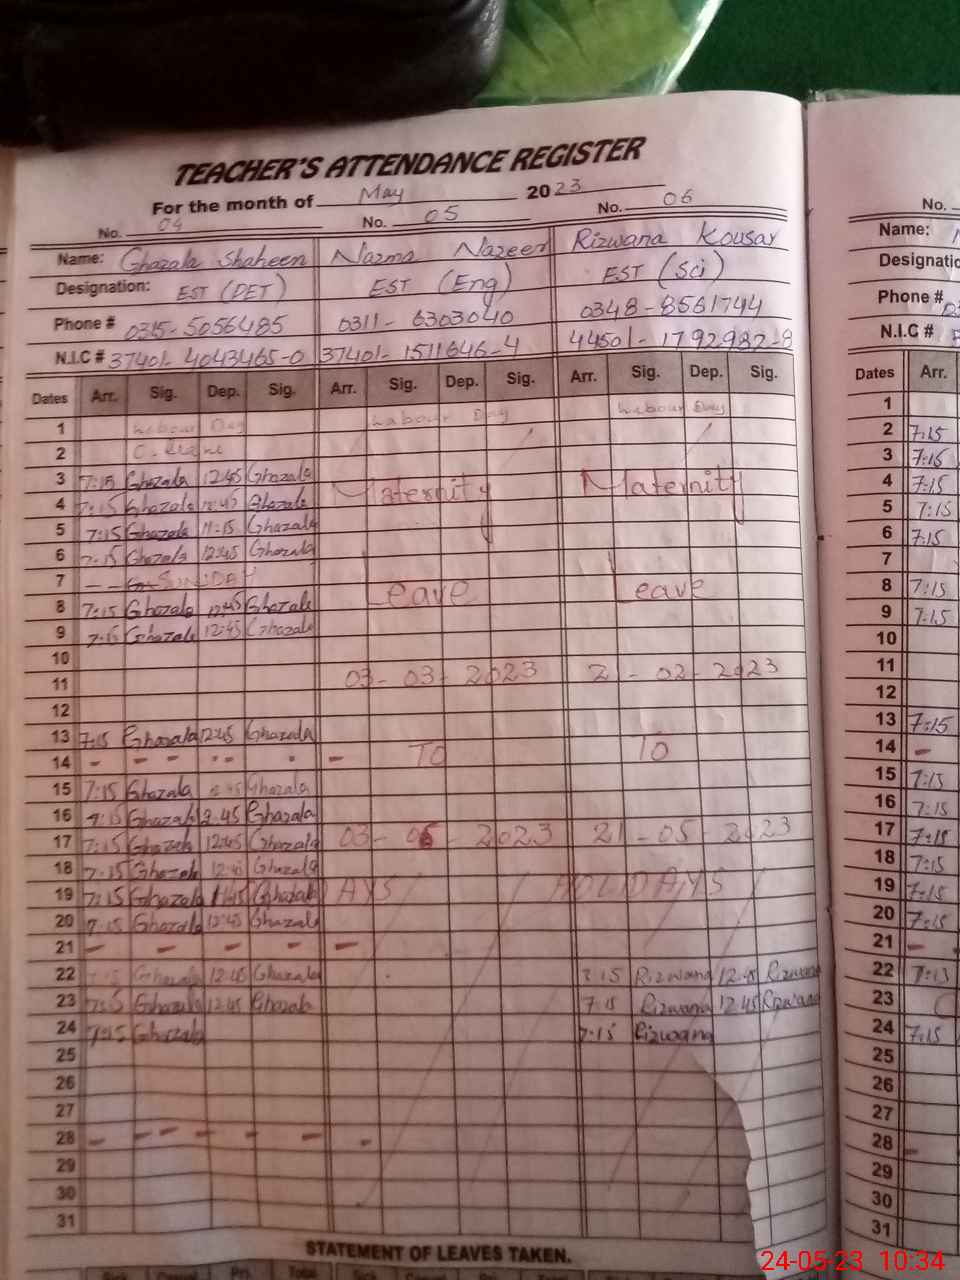 TEACHER'S ATTENDANCE REGISTER
For the month of May 2023
No. 04 No. 05 No. 06 No.
Name: Ghazala Shaheen Nazma Nazeer Rizwana Kousar Name:
Designation: EST (DET) EST (Eng) EST (Sci)
Phone # 0315-5056485 0311-6303040 0348-8561744 Phone #
N.I.C # 37401-4043465-0 37401-1511646-4 44501-1792982-8 N.I.C #
Dates Arr. Sig. Dep. Sig. Arr. Sig. Dep. Sig. Arr. Sig. Dep. Sig. Dates Arr.
1 Labour Day Labour Day Labour Day 1
2 C. Leave 2 7:15
3 7:15 Ghazala 12:45 Ghazala Maternity Maternity 3 7:15
4 7:15 Ghazala 12:45 Ghazala 4 7:15
5 7:15 Ghazala 11:15 Ghazala 5 7:15
6 7:15 Ghazala 12:45 Ghazala 6 7:15
7 - - SUNDAY 7
8 7:15 Ghazala 12:45 Ghazala Leave Leave 8 7:15
9 7:15 Ghazala 12:45 Ghazala 9 7:15
10 10
11 03-03-2023 21-02-2023 11
12 12
13 7:15 Ghazala 12:45 Ghazala 13 7:15
14 - - - - - - TO TO 14 -
15 7:15 Ghazala Ghazala 15 7:15
16 7:15 Ghazala 12.45 Ghazala 16 7:15
17 7:15 Ghazala 12:45 Ghazala 03-06-2023 21-05-2023 17 7:15
18 7:15 Ghazala 12:45 Ghazala 18 7:15
19 7:15 Ghazala 11:15 Ghazala DAYS HOLIDAYS 19 7:15
20 7:15 Ghazala 12:45 Ghazala 20 7:15
21 - - - - - 21 -
22 7:15 Ghazala 12:45 Ghazala 7:15 Rizwana 12:45 Rizwana 22 7:15
23 7:15 Ghazala 12:45 Ghazala 7:15 Rizwana 12:45 Rizwana 23
24 7:15 Ghazala 7:15 Rizwana 24 7:15
25 25
26 26
27 27
28 - - - - - - 28 -
29 29
30 30
31 31
STATEMENT OF LEAVES TAKEN.
24-05-23 10:34